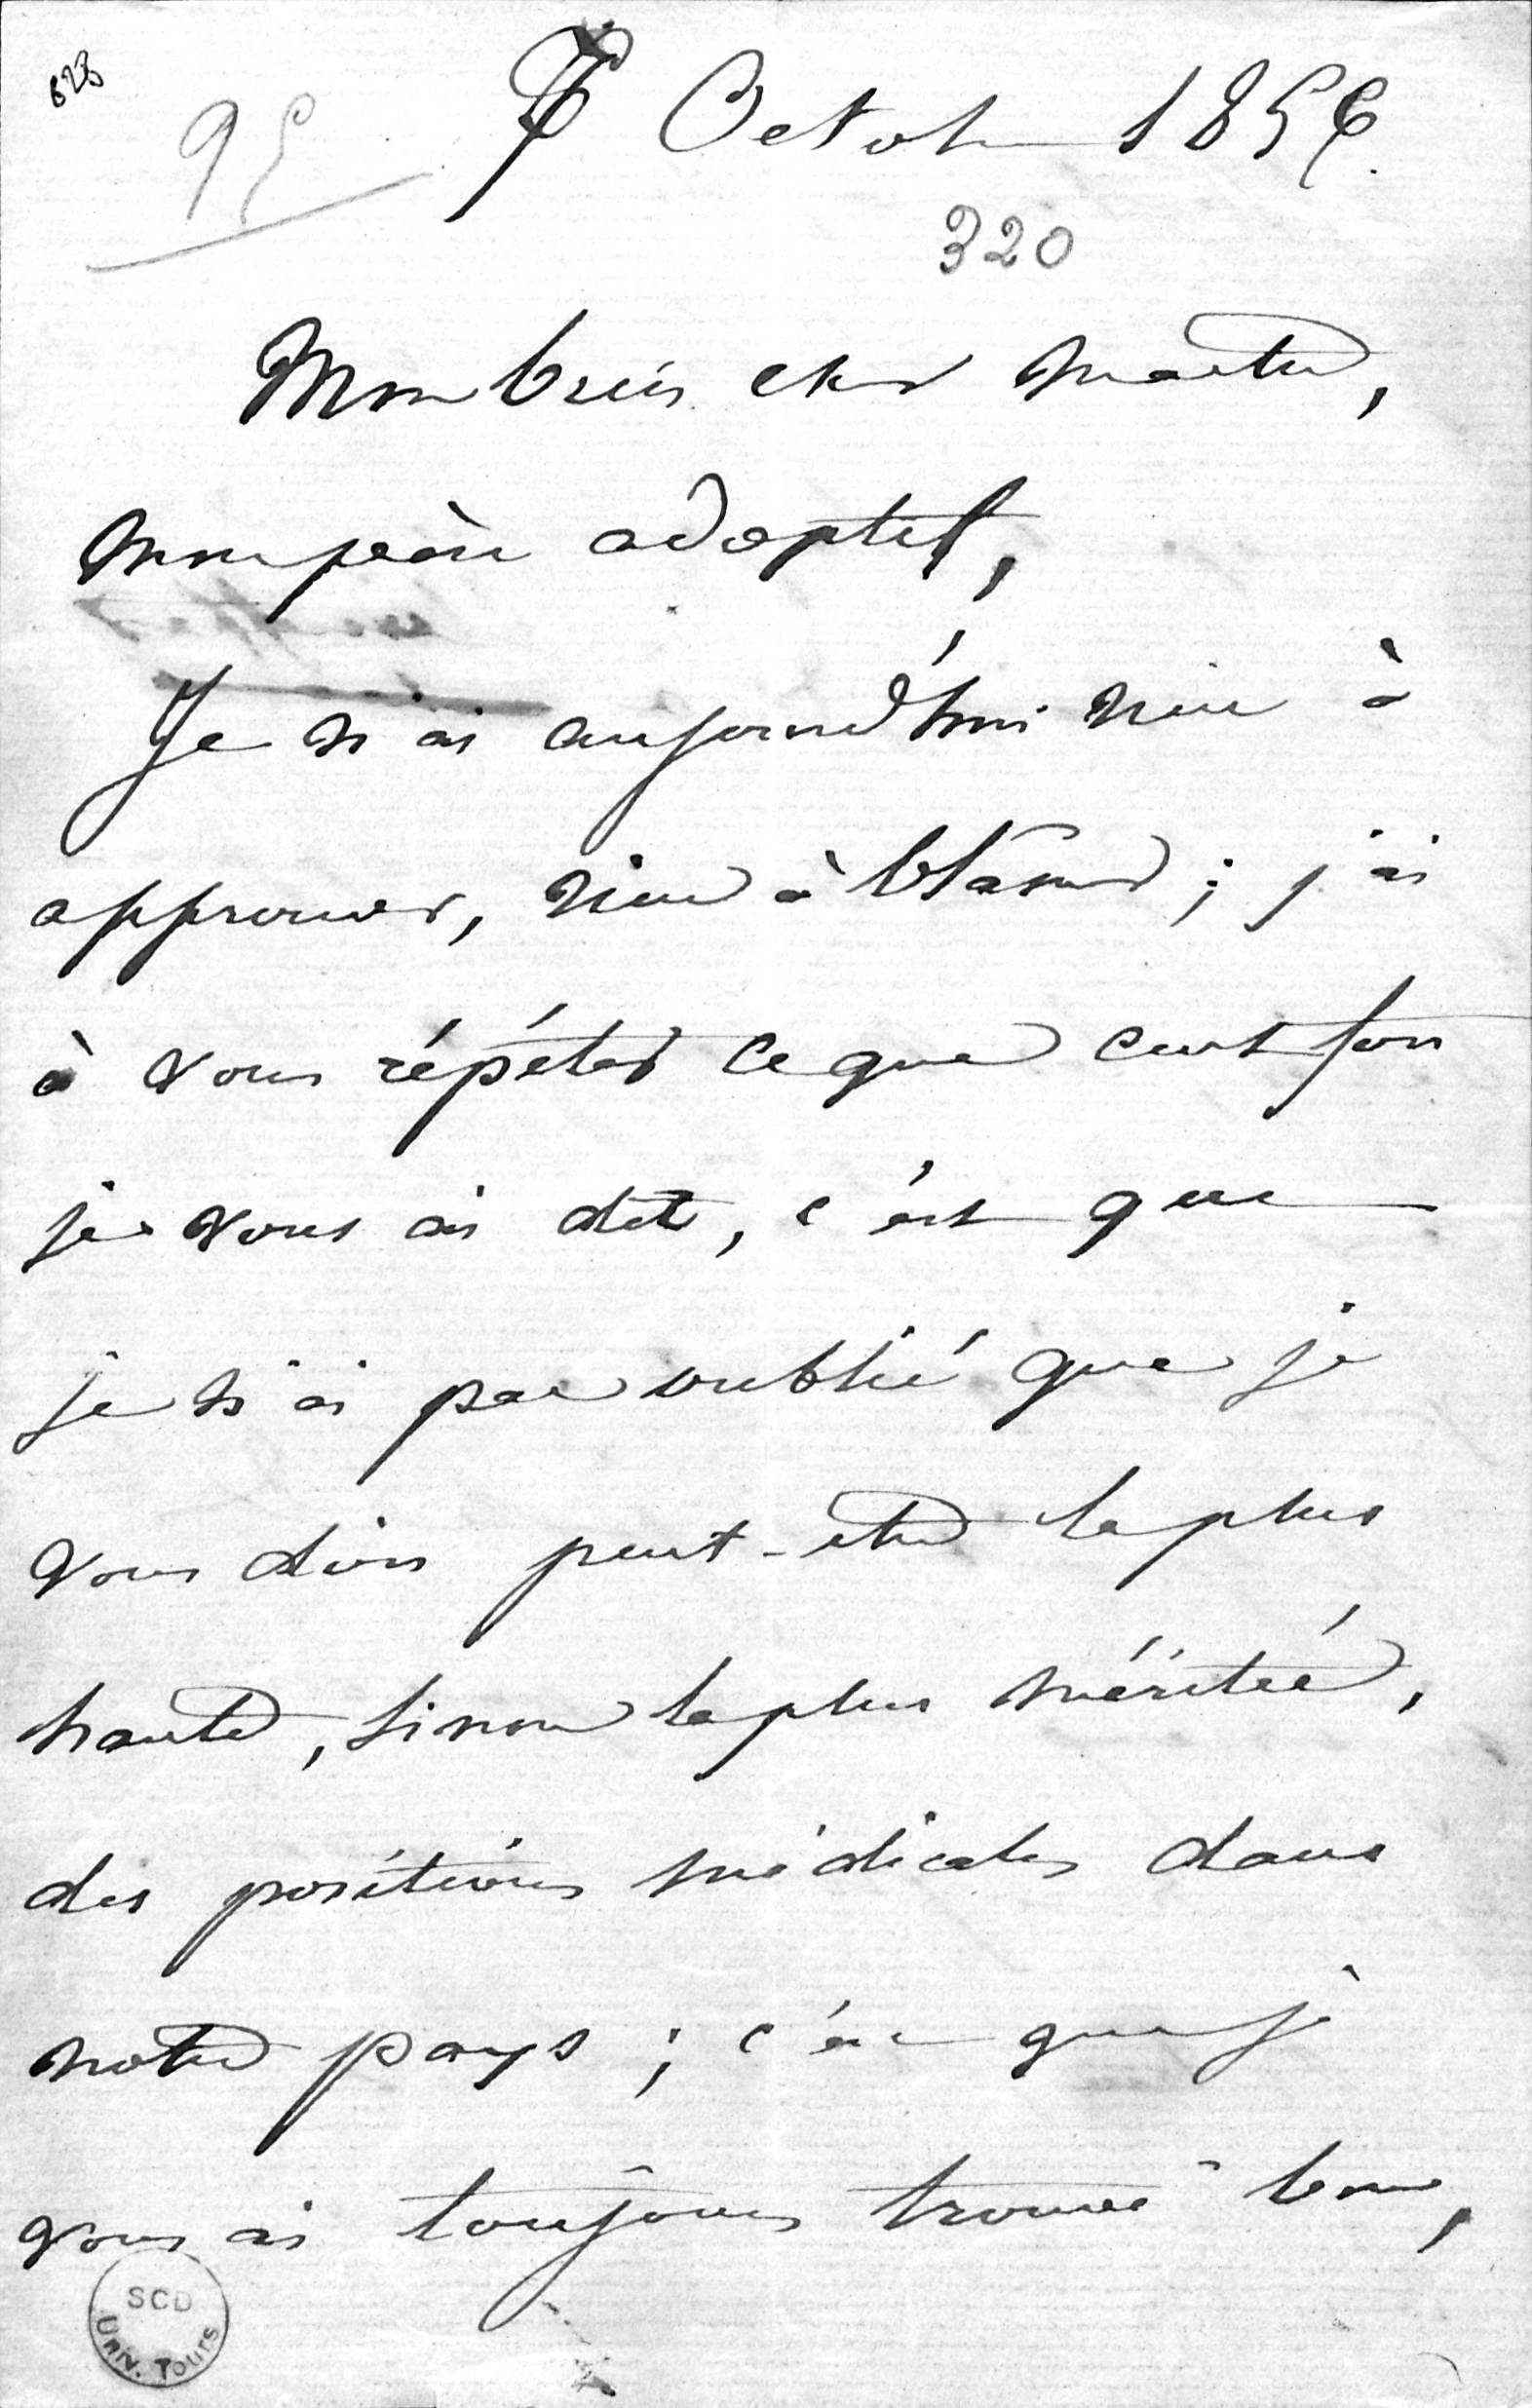 623
95
7 Octob 1856.
320
Mon bien cher maitre,
mon père adoptif,
Je n'ai aujourd'hui rien à
approuver, rien à blâmer ; j'ai
à vous répéter ce que cent fois
je vous ai dit, c'est que
je n'ai pas oublié que je
vous dois peut-être la plus
haute, sinon la plus méritée,
des positions médicales dans
notre pays ; c'est que je
vous ai toujours trouvé bon,
SCD
Univ. Tours